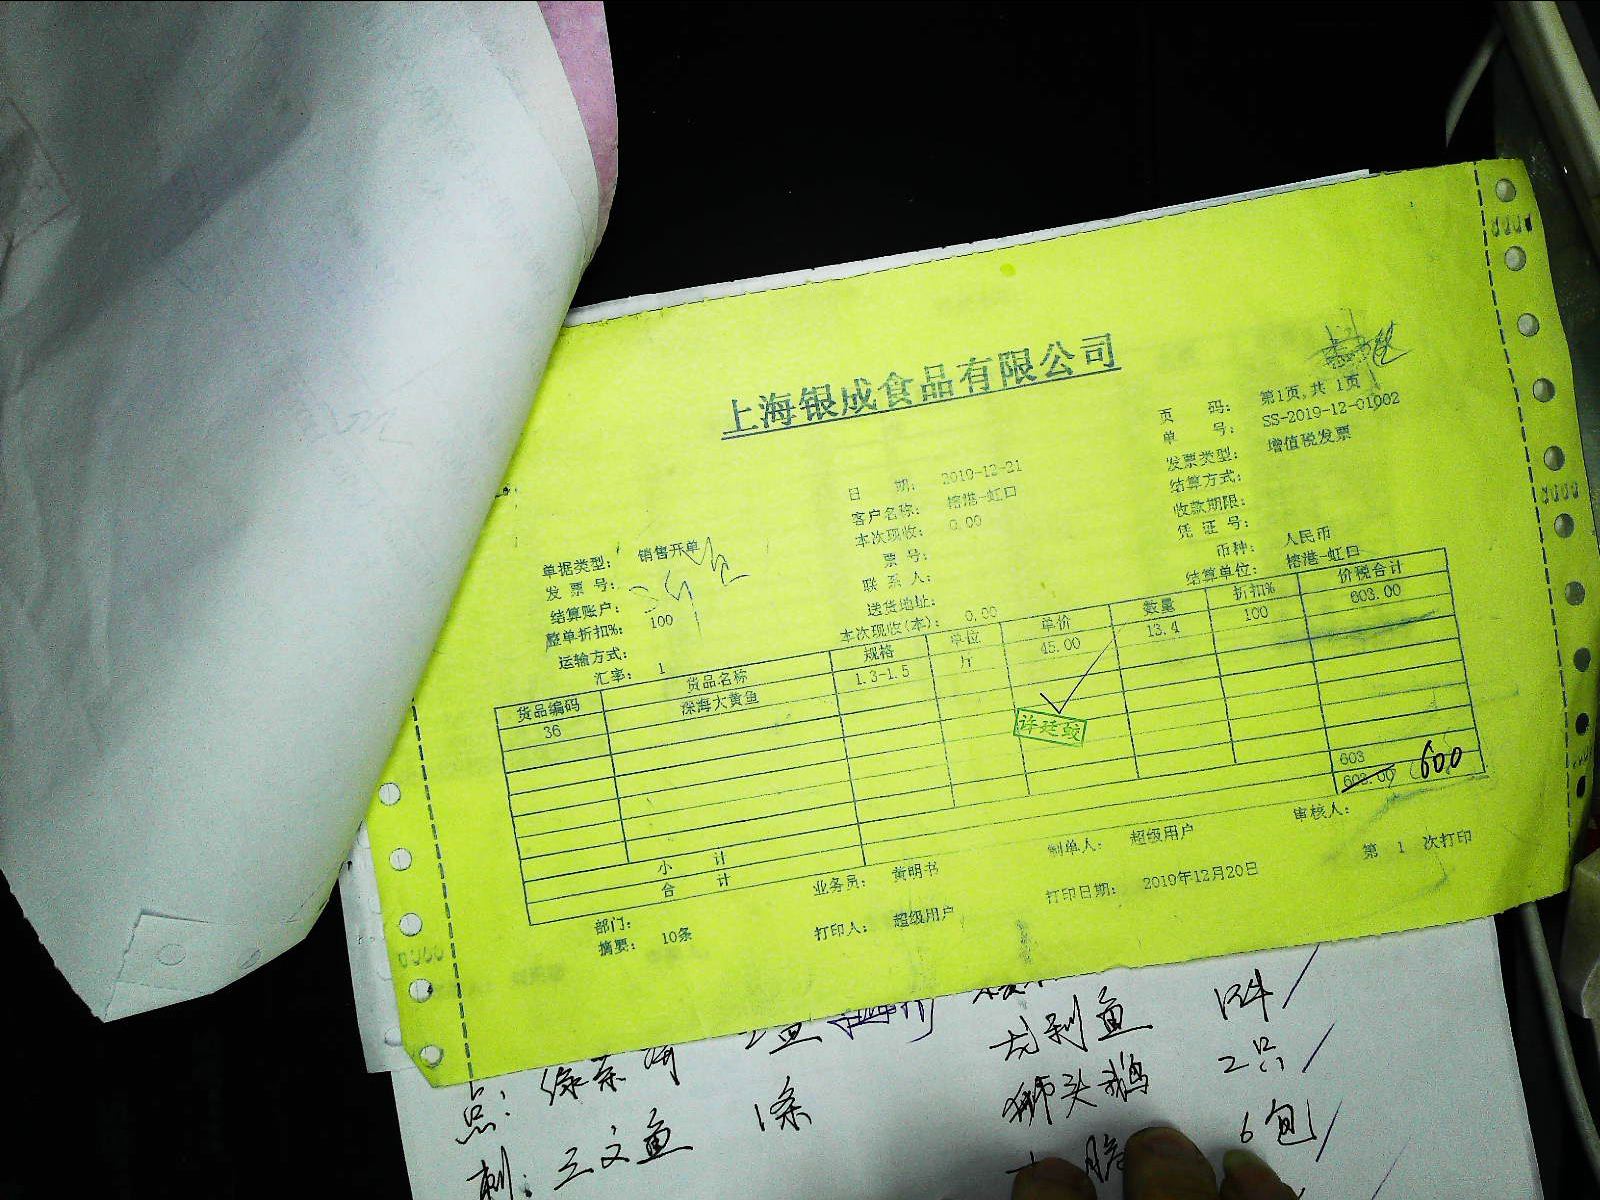 上海银成食品有限公司
页 码: 第1页, 共 1页
单 号: SS-2019-12-01002
发票类型: 增值税发票
结算方式:
收款期限:
凭 证 号:
币种: 人民币
结算单位: 榕港-虹口
日 期: 2019-12-21
客户名称: 榕港-虹口
本次现收: 0.00
票 号:
联 系 人:
送货地址:
本次现收(本): 0.00
单据类型: 销售开单
发 票 号:
结算账户:
整单折扣%: 100
运输方式:
汇率: 1
货品编码 货品名称 规格 单位 单价 数量 折扣% 价税合计
36 深海大黄鱼 1.3-1.5 斤 45.00 13.4 100 603.00
许廷蛟
小 计 603
合 计 603.00 600
部门: 业务员: 黄明书 制单人: 超级用户 审核人:
摘要: 10条 打印人: 超级用户 打印日期: 2019年12月20日 第 1 次打印
龙利鱼 1件
狮头鹅 2只
6包
刺: 三文鱼 1条